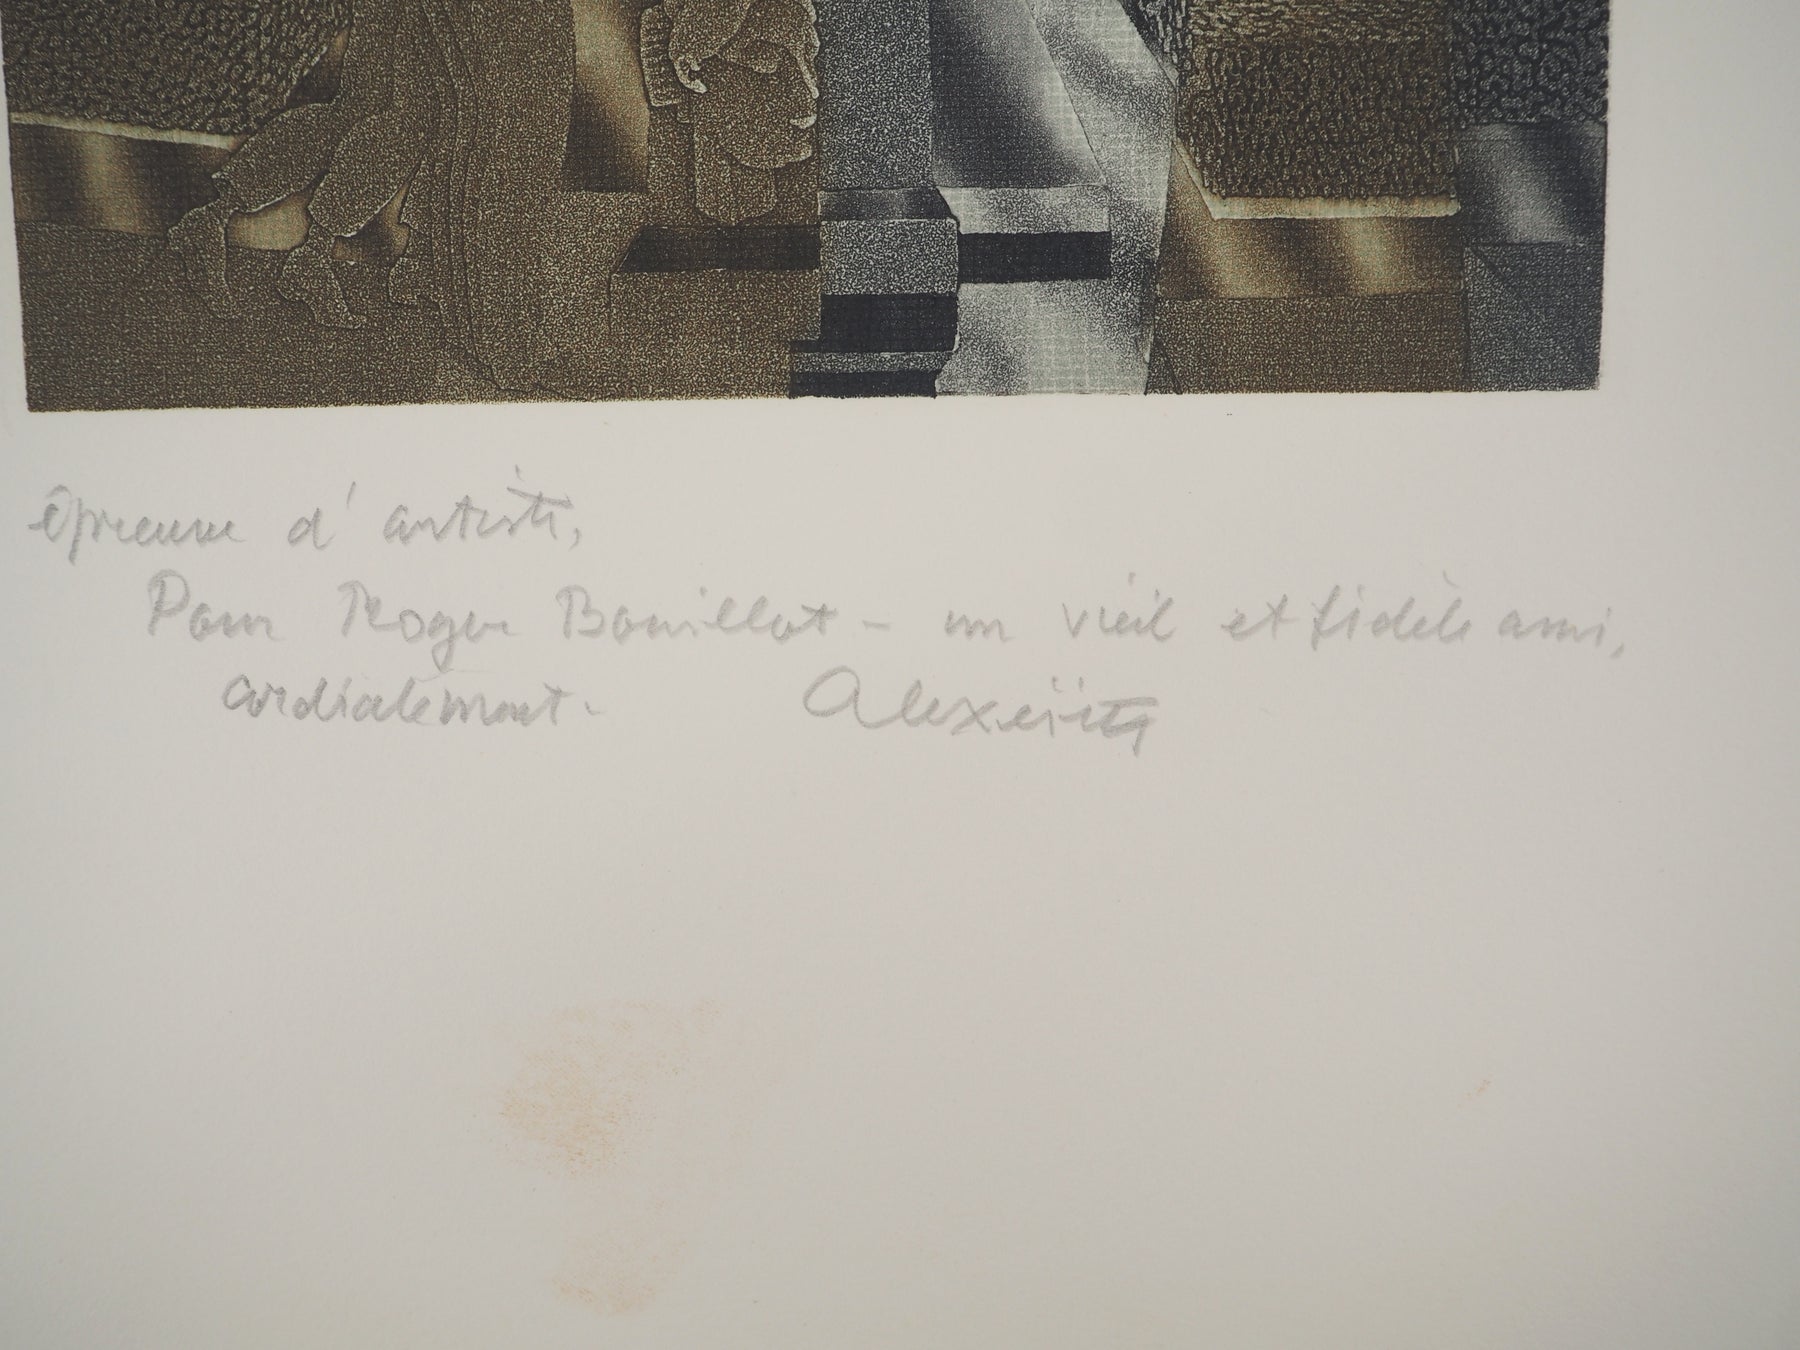 épreuve d'artiste,
Pour Roger Bouillot - un vieil et fidèle ami,
cordialement. Alexeïeff